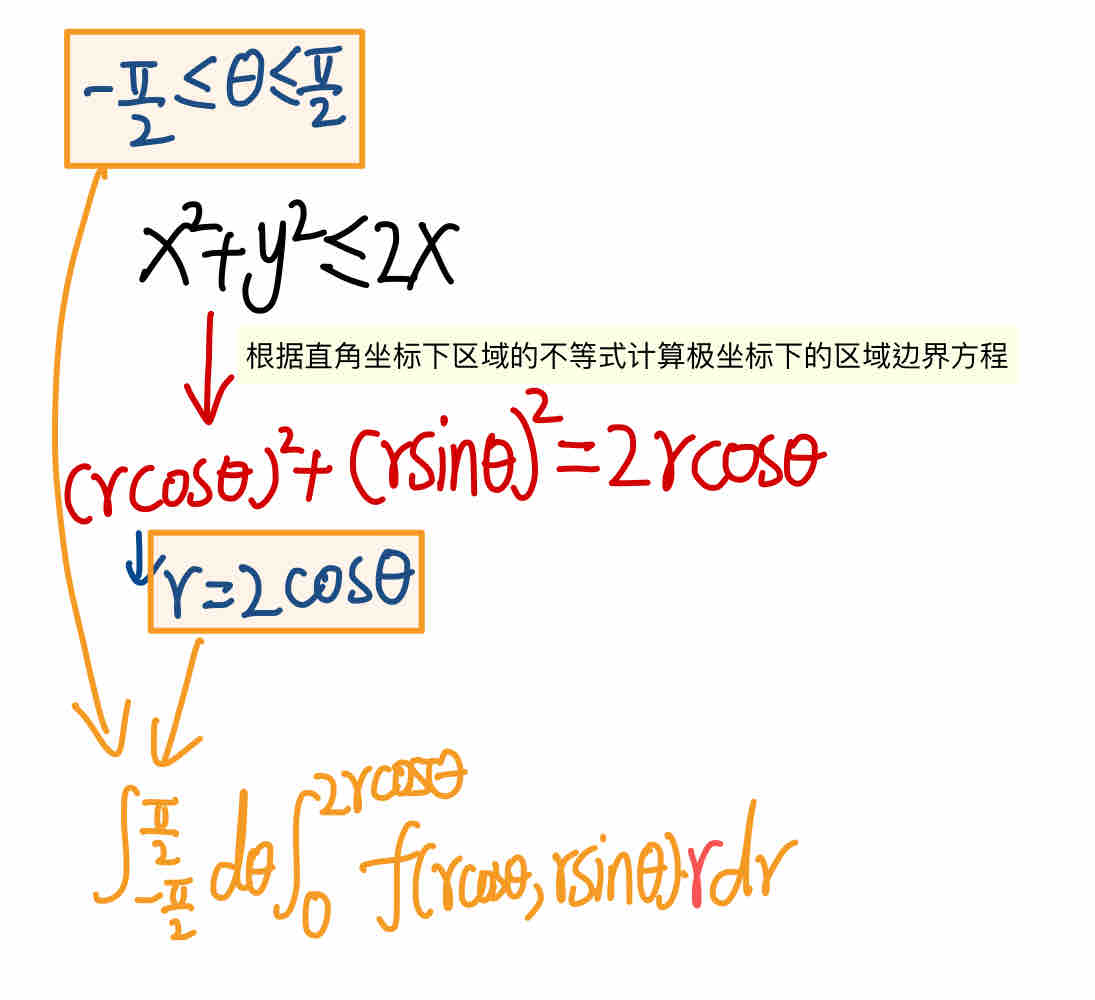 -π/2≤θ≤π/2
x²+y²≤2x
根据直角坐标下区域的不等式计算极坐标下的区域边界方程
(rcosθ)²+(rsinθ)²=2rcosθ
r=2cosθ
∫_{-π/2}^{π/2} dθ∫_0^{2rcosθ} f(rcosθ,rsinθ)rdr